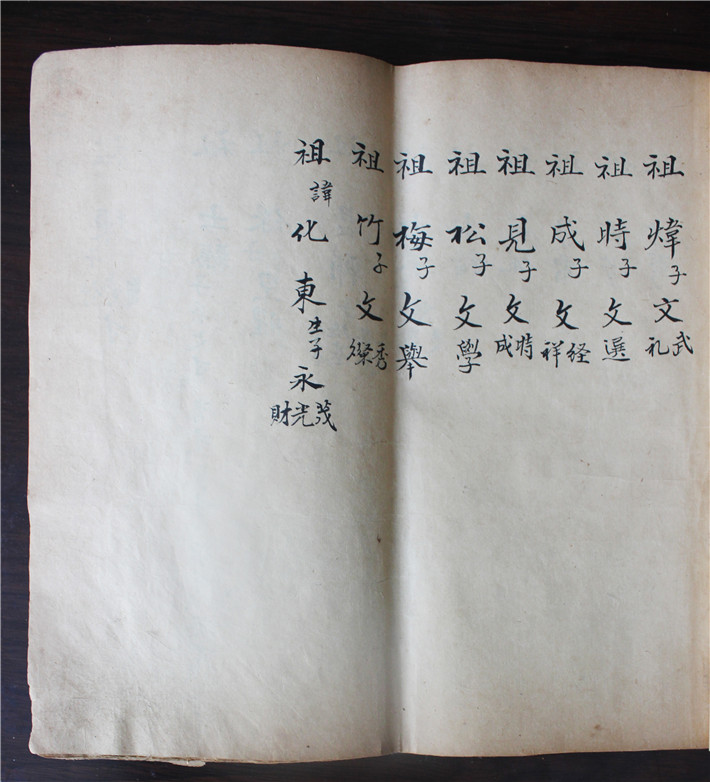 祖煒子文武礼
祖時子文選
祖成子文経祥
祖見子文時成
祖松子文學
祖梅子文舉
祖竹子文秀燦
祖諱化東生子永茂光財